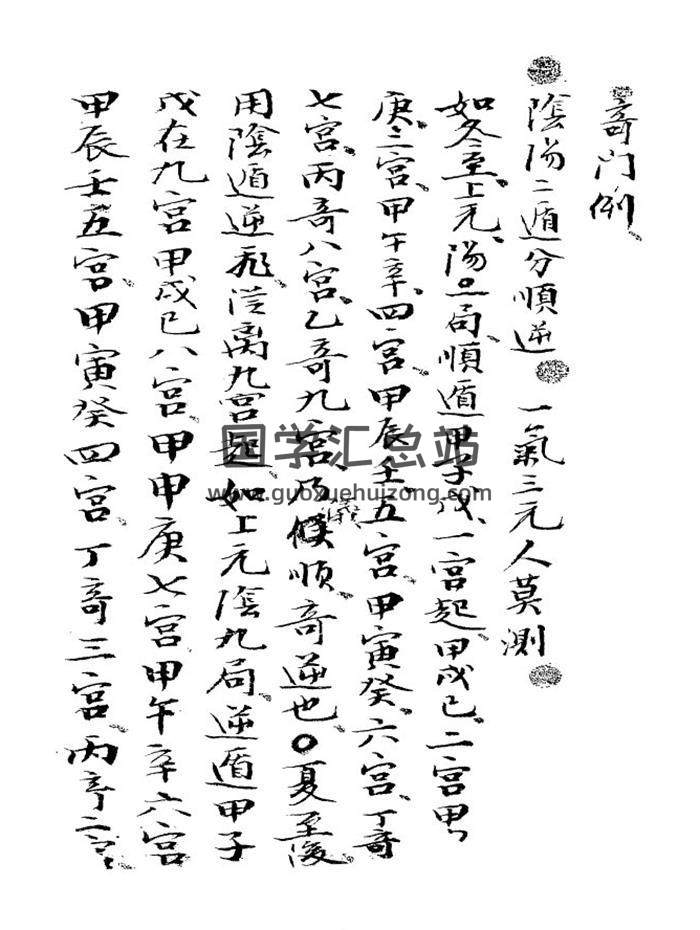 奇門例
陰陽二遁分順逆 一氣三元人莫測
如冬至上元陽一局順遁甲子戊一宮起甲戌己二宮甲
庚三宮甲午辛四宮甲辰壬五宮甲寅癸六宮丁奇
七宮丙奇八宮乙奇九宮乃候儀順奇逆也○夏至後
用陰遁逆飛從离九宮起如上元陰九局逆遁甲子
戊在九宮甲戌己八宮甲申庚七宮甲午辛六宮
甲辰壬五宮甲寅癸四宮丁奇三宮丙奇二宮
国学汇总站
www.guoxuehuizong.com